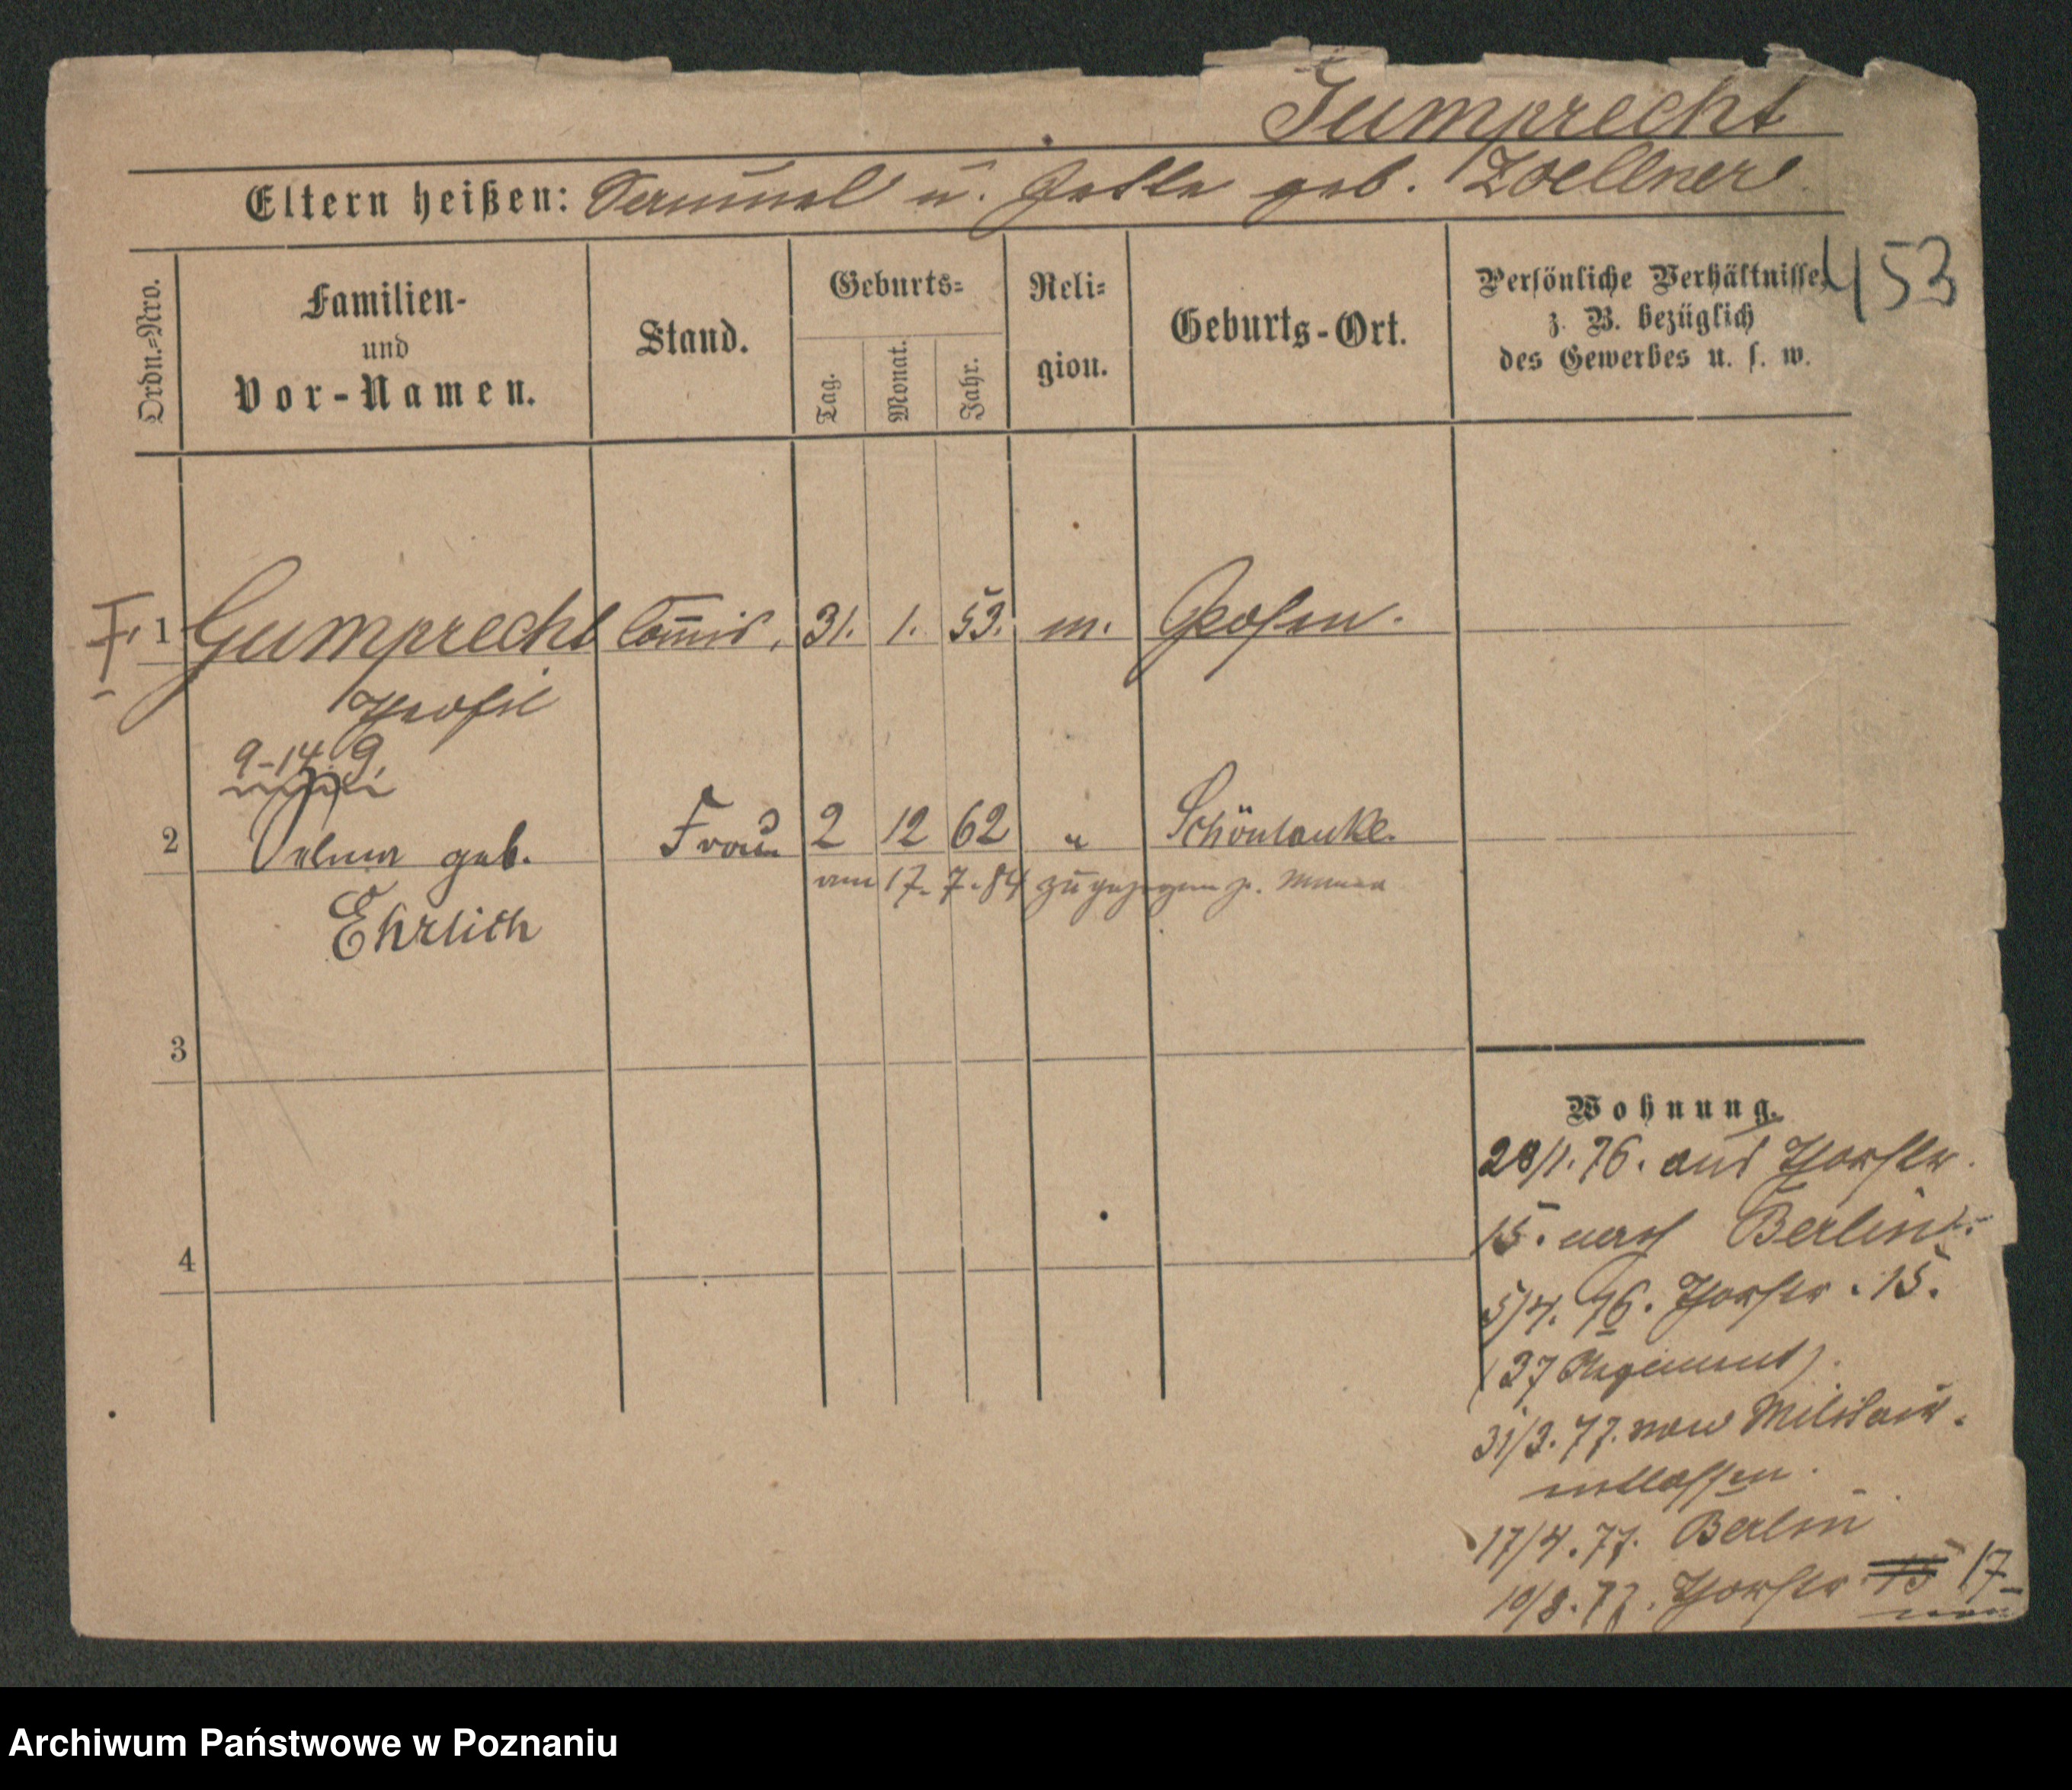 Gumprecht
Eltern heißen: Samuel u. Jette geb. Zoellner
453
Ordn.-Nro.
Familien-
und
Vor-Namen.
Stand.
Geburts-
Tag.
Monat.
Jahr.
Reli-
gion.
Geburts-Ort.
Persönliche Verhältnisse,
z. B. bezüglich
des Gewerbes u. s. w.
1 Gumprecht Com̄is, 31. 1. 53. m. Posen.
9-14. 9.
2 geb. Frau 2 12 62 " Schönlanke.
Ehrlich
am 17. 7. 84 zugezogen
3
4
Wohnung.
20/1. 76. aus
15. nach Berlin.
5/4. 76. 15.
(37 Regiment).
31/3. 77. vom Militair
entlassen.
17/4. 77. Berlin
10/8. 77. 15 17
Archiwum Państwowe w Poznaniu